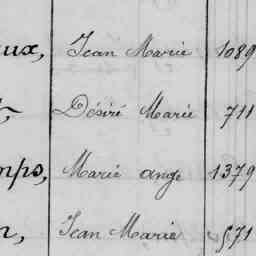 aux, Jean Marie 1089
Désiré Marie 711
mps, Marie ange 1379
n, Jean Marie 571